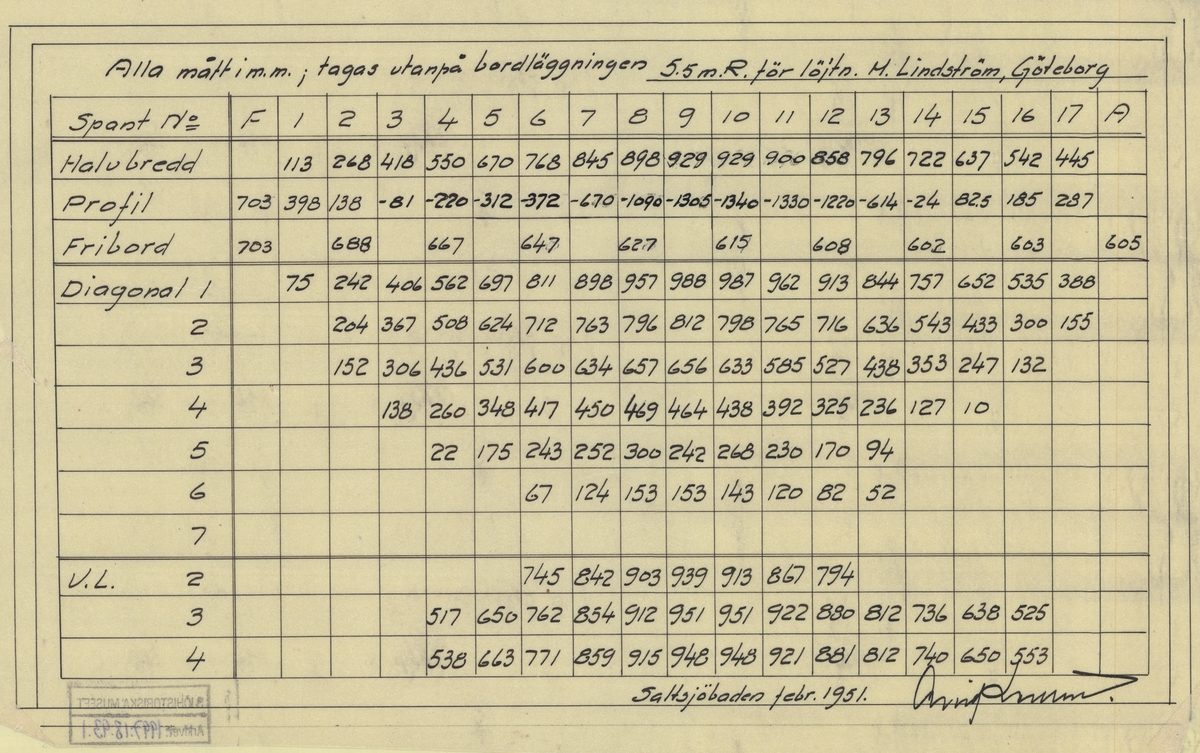 Alla mått i m.m. ; tagas utanpå bordläggningen 5.5 m.R. för löjtn. H. Lindström, Göteborg
Spant No F 1 2 3 4 5 6 7 8 9 10 11 12 13 14 15 16 17 A
Halvbredd 113 268 418 550 670 768 845 898 929 929 900 858 796 722 637 542 445
Profil 703 398 138 -81 -220 -312 -372 -670 -1090 -1305 -1340 -1330 -1220 -614 -24 82.5 185 287
Fribord 703 688 667 647 627 615 608 602 603 605
Diagonal 1 75 242 406 562 697 811 898 957 988 987 962 913 844 757 652 535 388
2 204 367 508 624 712 763 796 812 798 765 716 636 543 433 300 155
3 152 306 436 531 600 634 657 656 633 585 527 438 353 247 132
4 138 260 348 417 450 469 464 438 392 325 236 127 10
5 22 175 243 252 300 242 268 230 170 94
6 67 124 153 153 143 120 82 52
7
V.L. 2 745 842 903 939 913 867 794
3 517 650 762 854 912 951 951 922 880 812 736 638 525
4 538 663 771 859 915 948 948 921 881 812 740 650 553
Saltsjöbaden febr. 1951.
SJÖHISTORISKA MUSEET